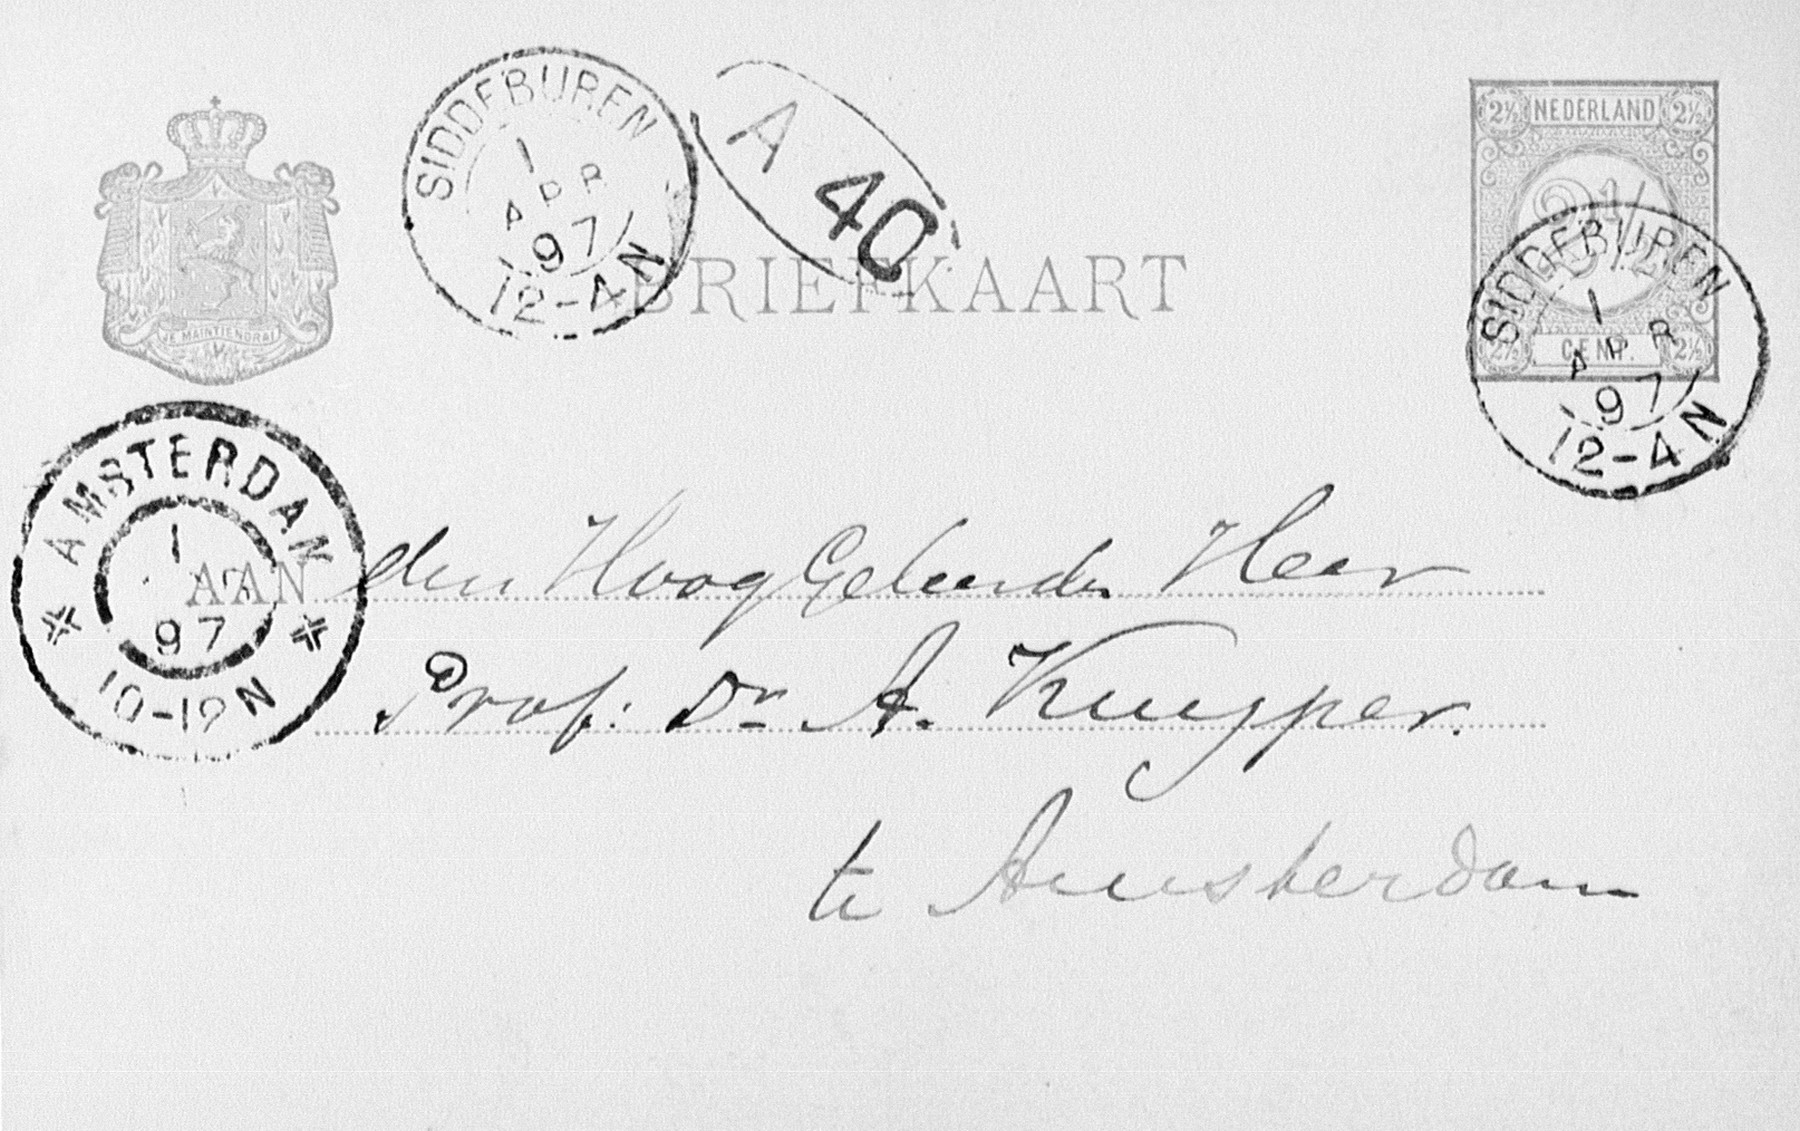 SIDDEBUREN
1
APR
97
12-4N
A 40
BRIEFKAART
JE MAINTIENDRAI
2½ NEDERLAND 2½
2½
2½ CENT. 2½
SIDDEBUREN
1
APR
97
12-4N
AMSTERDAM
1
97
10-12N
AAN den HoogGeleerden Heer
Prof. Dr. A. Kuyper.
te Amsterdam